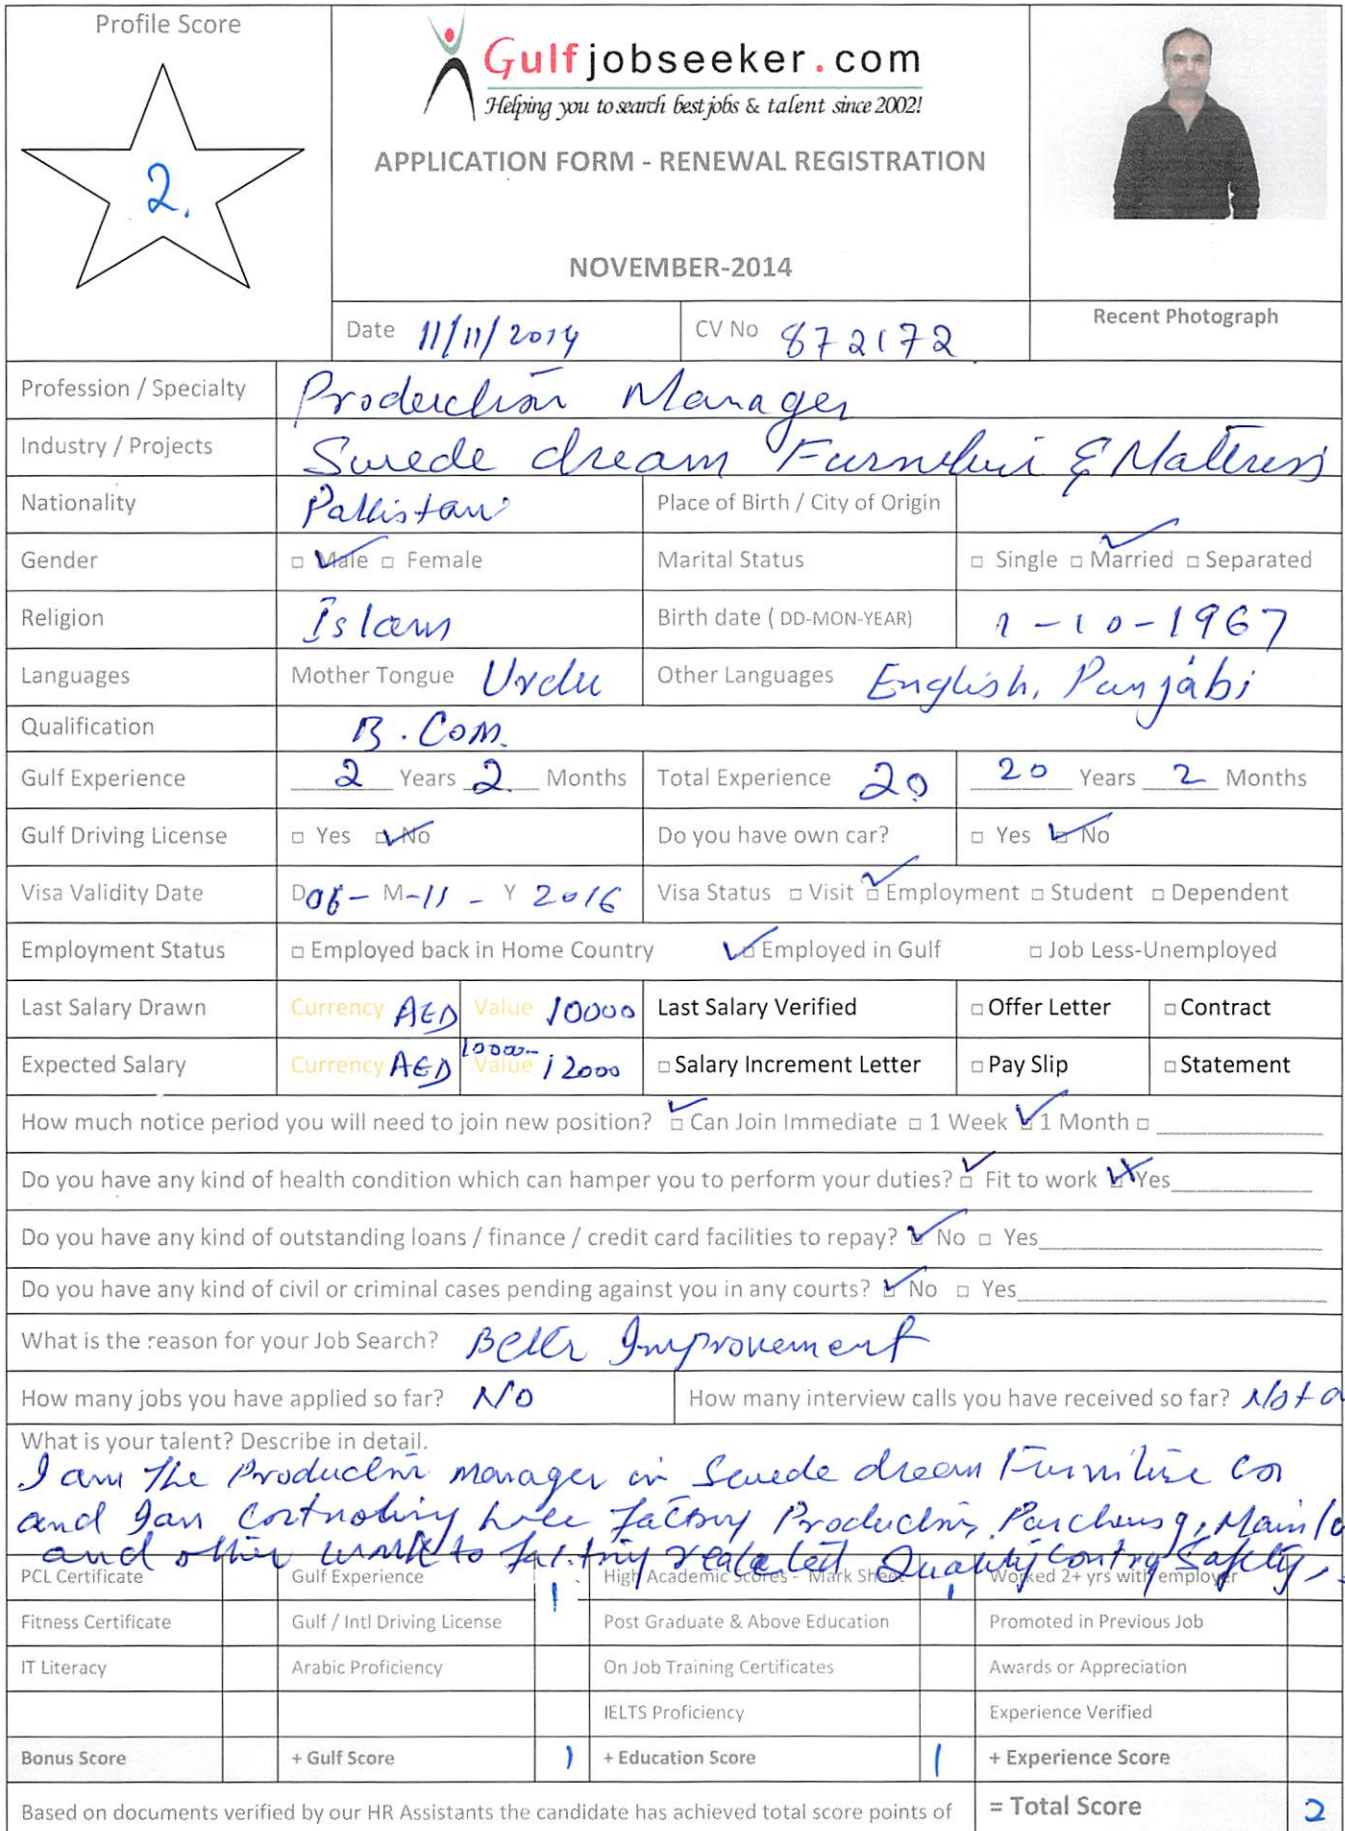 Profile Score
2.
Gulfjobseeker.com
Helping you to search best jobs & talent since 2002!
APPLICATION FORM - RENEWAL REGISTRATION
NOVEMBER-2014
Date 11/11/2014 CV No 872172
Recent Photograph
Profession / Specialty Production Manager
Industry / Projects Swede dream & Mattress
Nationality Pakistani Place of Birth / City of Origin
Gender □ Male □ Female Marital Status □ Single □ Married □ Separated
Religion Islam Birth date ( DD-MON-YEAR) 1-10-1967
Languages Mother Tongue Urdu Other Languages English, Punjabi
Qualification B.Com.
Gulf Experience 2 Years 2 Months Total Experience 20 20 Years 2 Months
Gulf Driving License □ Yes □ No Do you have own car? □ Yes □ No
Visa Validity Date D 06- M-11 - Y 2016 Visa Status □ Visit □ Employment □ Student □ Dependent
Employment Status □ Employed back in Home Country □ Employed in Gulf □ Job Less-Unemployed
Last Salary Drawn Currency AED Value 10000 Last Salary Verified □ Offer Letter □ Contract
Expected Salary Currency AED Value 10000-12000 □ Salary Increment Letter □ Pay Slip □ Statement
How much notice period you will need to join new position? □ Can Join Immediate □ 1 Week □ 1 Month □
Do you have any kind of health condition which can hamper you to perform your duties? □ Fit to work □ Yes
Do you have any kind of outstanding loans / finance / credit card facilities to repay? □ No □ Yes
Do you have any kind of civil or criminal cases pending against you in any courts? □ No □ Yes
What is the reason for your Job Search? Better Improvement
How many jobs you have applied so far? No How many interview calls you have received so far? Not a
What is your talent? Describe in detail.
I am the Production manager in Swede dream Furniture
and factory Production,
and other to Quality Safety,
PCL Certificate Gulf Experience 1 High Academic Scores - Mark Sheet 1 Worked 2+ yrs with employer
Fitness Certificate Gulf / Intl Driving License Post Graduate & Above Education Promoted in Previous Job
IT Literacy Arabic Proficiency On Job Training Certificates Awards or Appreciation
IELTS Proficiency Experience Verified
Bonus Score + Gulf Score 1 + Education Score 1 + Experience Score
Based on documents verified by our HR Assistants the candidate has achieved total score points of = Total Score 2